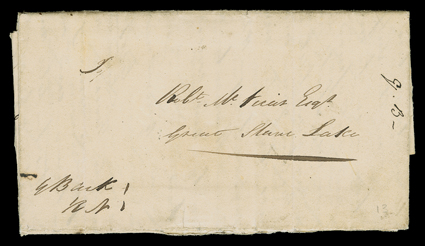 To
Robt. Mc Vicar Esqr.
Great Slave Lake
G Back
RN
G. B-
13